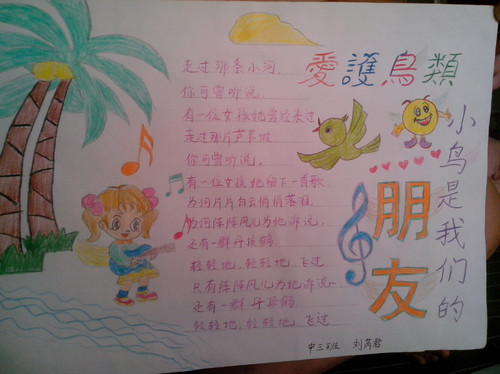 愛護鳥類
小鸟是我们的
朋友
走过那条小河，
你可曾听说，
有一位女孩她曾经来过
走过那片芦苇坡
你可曾听说，
有一位女孩她留下一首歌
为何片片白云悄悄落泪
为何阵阵风儿为她诉说，
还有一群丹顶鹤
轻轻地，轻轻地，飞过
只有阵阵风儿为她诉说…
还有一群丹顶鹤
轻轻地，轻轻地，飞过
中三班 刘芮君